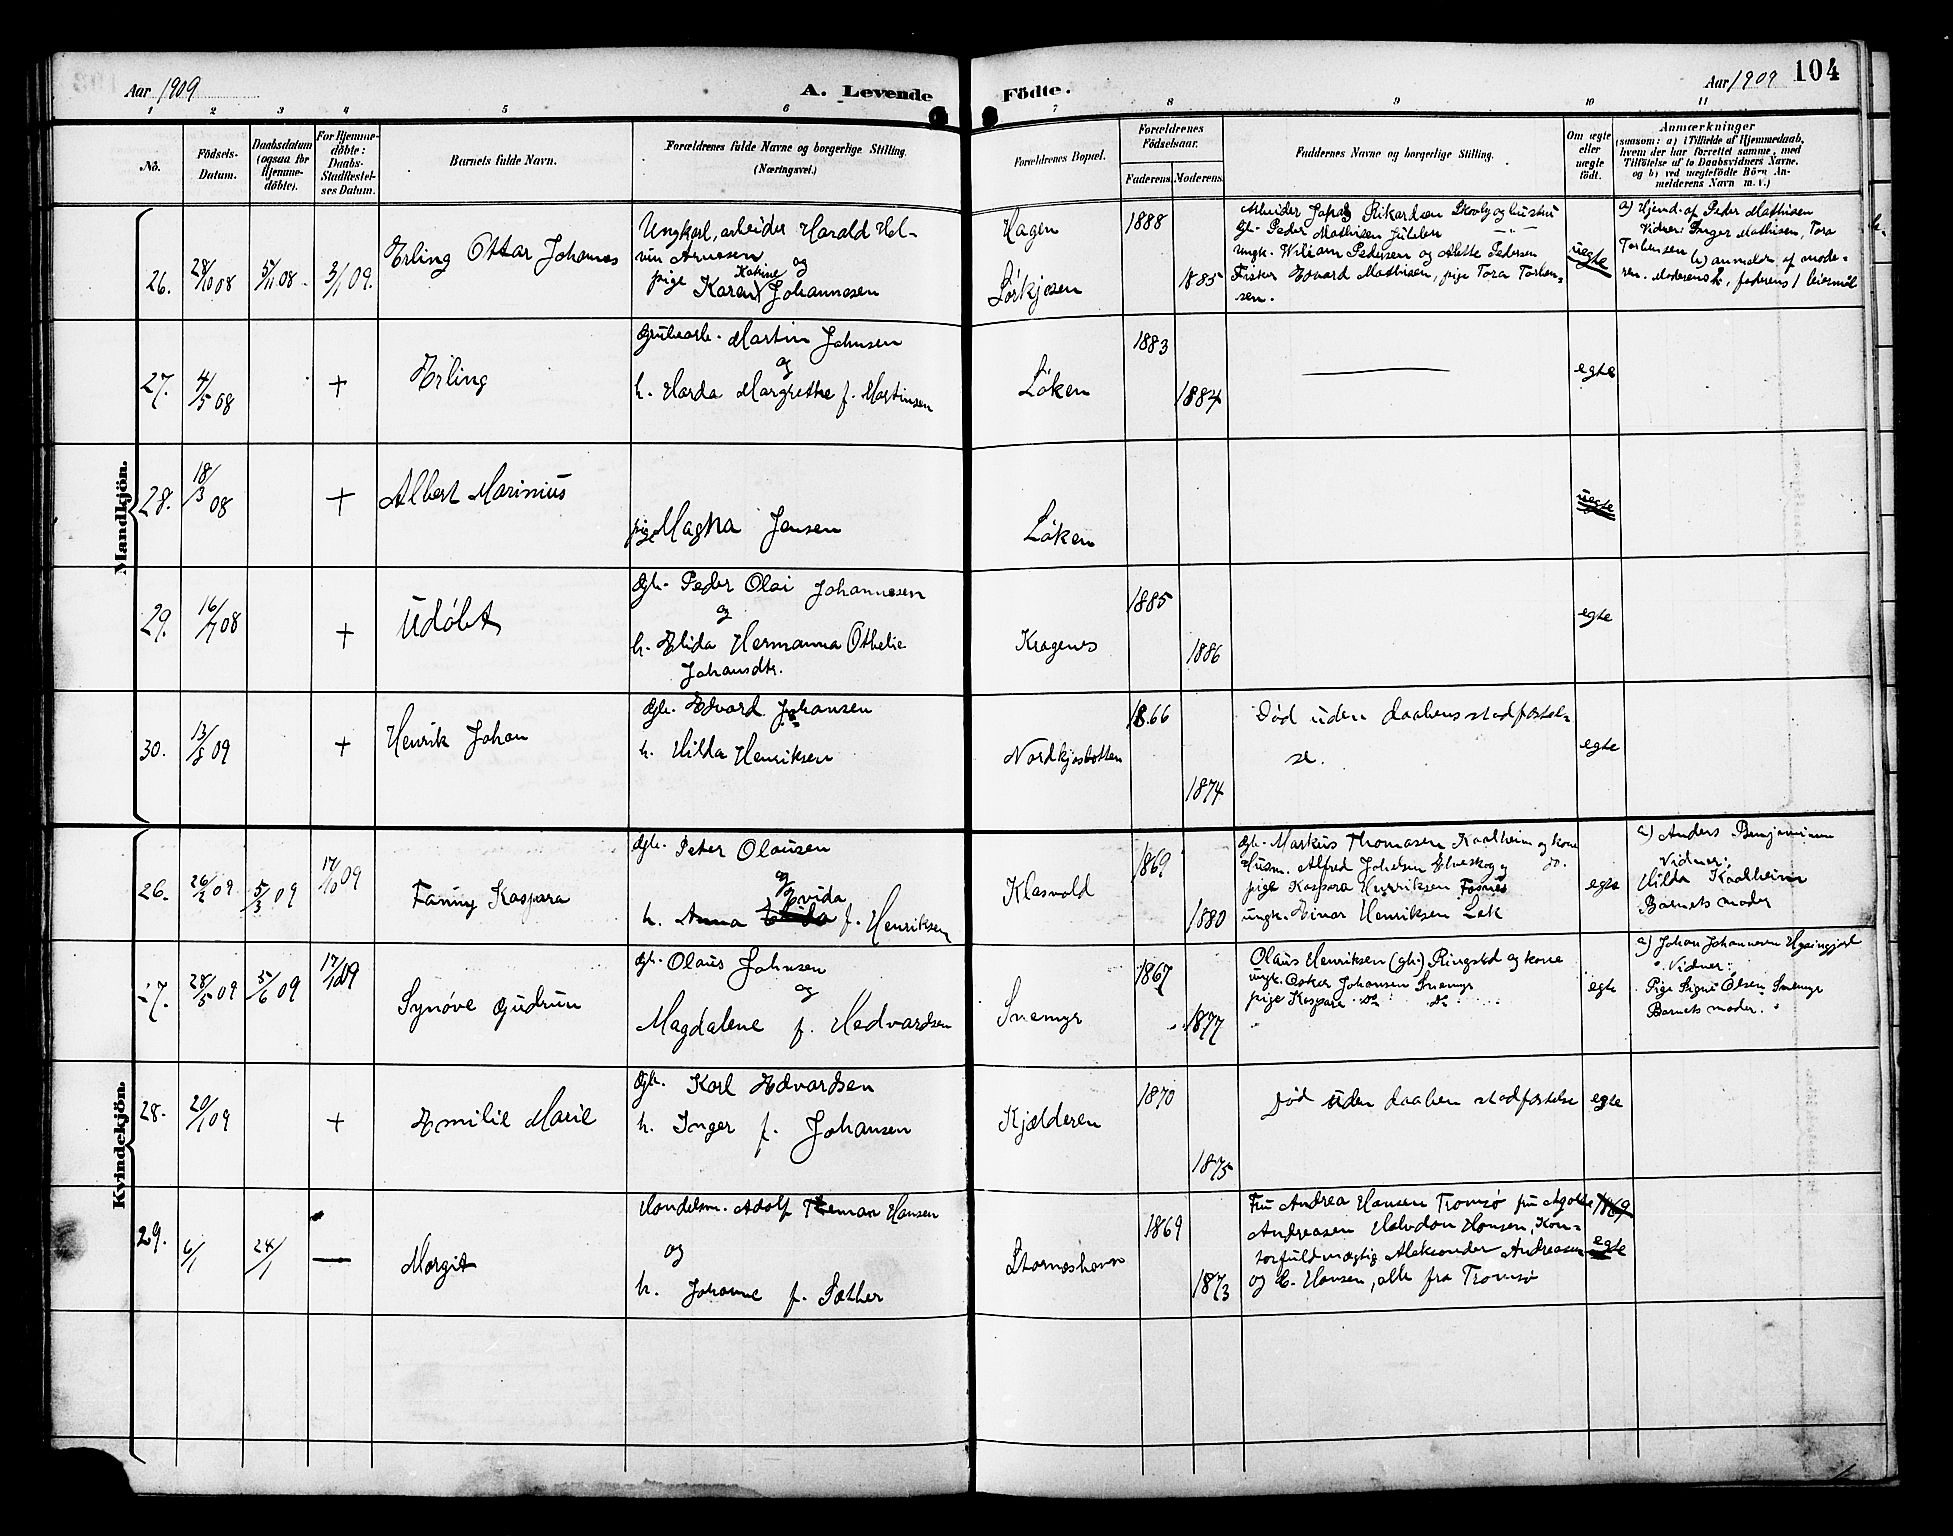 Aar 1909
A. Levende
Födte.
Aar 1909
104
1 2 3 4 5 6 7 8 9 10 11
No.
Födsels-
Datum.
Daabsdatum
(ogsaa for
Hjemme-
döbte).
For Hjemme-
döbte:
Daabs-
Stadfæstel-
ses Datum.
Barnets fulde Navn.
Forældrenes fulde Navne og borgerlige Stilling.
(Næringsvei.)
Forældrenes Bopæl.
Forældrenes
Födselsaar.
Faderens.
Moderens.
Faddernes Navne og borgerlige Stilling.
Om ægte
eller
uægte
födt.
Anmærkninger
(saasom: a) i Tilfælde af Hjemmedaab,
hvem der har forrettet samme, med
Tilföielse af to Daabsvidners Navne.
og b) ved uægtefödte Börn An-
melderens Navn m. V.)
Mandkjön.
26.
28/10 08
5/11 08.
3/1 09.
Erling Ottar Johannes
Ungkarl, arbeider Harald Hel-
vin Arnesen
og
pige Karen Katrine Johannesen
Hagen
Sørkjosen
1888
1885
Arbeider Rikardsen Skovly og hustru
Gb. Peder Mathisen
ungk. Wiliam Pedersen og Alette Pedersen
Fisker Edvard Mathisen, pige Tora Torben-
sen.
uegte
a) Hjemd. af Peder Mathisen
Vidner: Inger Mathisen, Tora
Torbensen b) anmeldr. af mode-
ren. Moderens 2., faderens 1 leiermål
27.
4/5 08
+
Erling
Grubearb. Martin Johnsen
og
h. Harda Margrethe f. Martinsen
Løken
1883
1884
egte
28.
18/3 08
+
Albert Marinius
pige Magna Jensen
Løken
uegte
29.
16/7 08
+
Udøbt
Gb. Peder Olai Johannesen
og
h. Elida Hermanna Othelie
Johansdtr.
Kragenes
1885
1886
egte
30.
13/3 09
+
Henrik Johan
Gb. Edvard Johansen
h. Hilda Henriksen
Nordkjosbotten
1866
1874
Død uden daabens stadfæstel-
se.
egte
Kvindekjön.
26.
26/2 09
5/3 09
17/10 09
Fanny Kaspara
Gb. Peter Olausen
og
h. Anna Evida f. Henriksen
Klasvold
1869
1880
Gb. Markus Thomasen Kaalheim og kone
Husm. Alfred Johansen Elveskog og do.
pige Kaspara Henriksen Fosnes
ungk. Einar Henriksen Lak
egte
a) Anders Benjaminsen
Vidner:
Hilda Kaalheim
Barnets moder
27.
28/5 09
5/6 09
17/10 09
Synøve Gudrun
Gb. Olaus Johnsen
og
Magdalene f. Hedvardsen
Snemyr
1867
1877
Olaus Henriksen (gb.) Ringstad og kone
ungk. Oskar Johansen Snemyr
pige Kaspara do do
egte
a) Johan Johannesen
Vidner:
Pige Signe Olsen Snemyr
Barnets moder.
28.
20/1 09
+
Emilie Marie
Gb. Karl Edvardsen
h. Inger f. Johansen
Kjælderen
1870
1875
Død uden daaben stadfæstelse
egte
29.
6/1
24/1
—
Margit
Handelsm. Adolf Theman Hansen
og
h. Johanne f. Sæther
Storneshavn
1869
1873
Fru Andrea Hansen Tromsø fru Agathe
Andreasen Halvdan Hansen, Kon-
torfuldmægtig Aleksander Andreasen
og C. Hansen, alle fra Tromsø
1869
egte